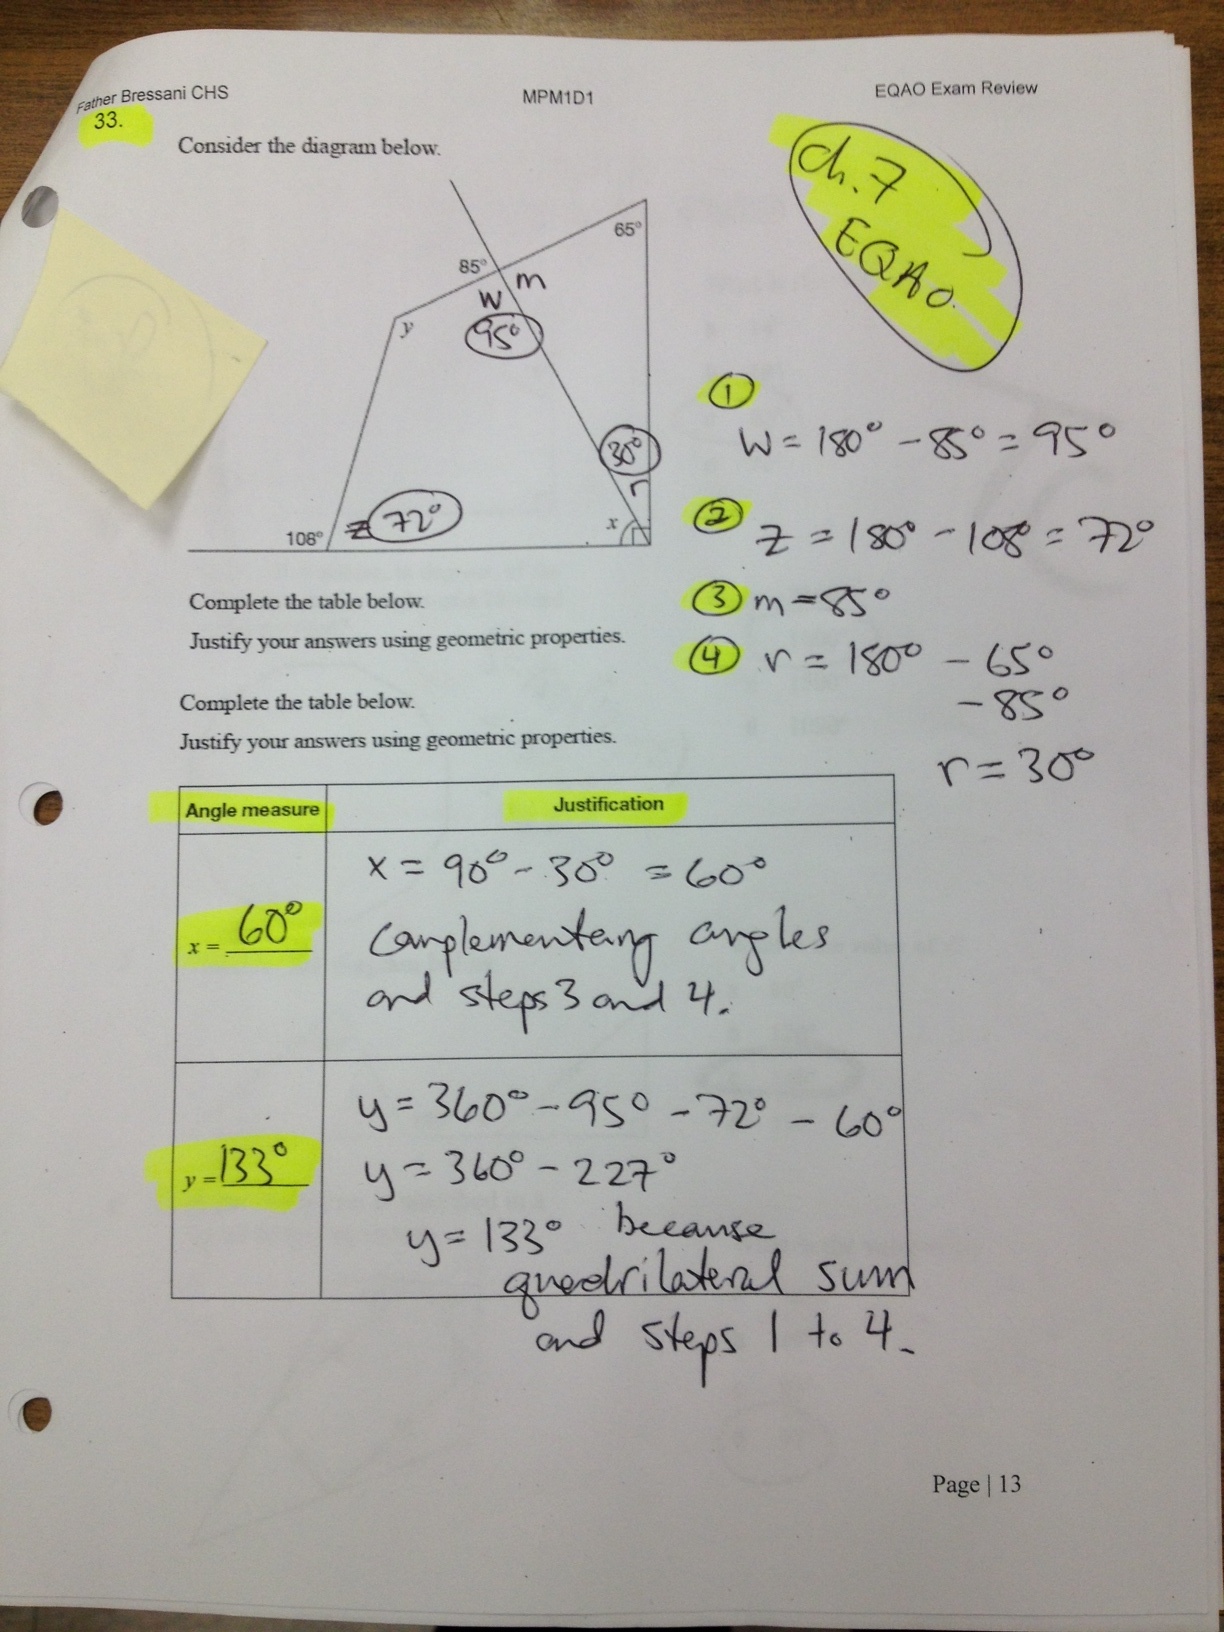 Father Bressani CHS MPM1D1 EQAO Exam Review
33.
Consider the diagram below.
ch. 7
EQAO.
65°
85°
m
w
95°
y
30°
r
x
108°
z 72°
① 
w = 180° - 85° = 95°
② z = 180° - 108° = 72°
③ m = 85°
④ r = 180° - 65°
- 85°
r = 30°
Complete the table below.
Justify your answers using geometric properties.
Complete the table below.
Justify your answers using geometric properties.
Angle measure Justification
x = 60°
x = 90° - 30° = 60°
complementary angles
and steps 3 and 4.
y = 133°
y = 360° - 95° - 72° - 60°
y = 360° - 227°
y = 133° because
quadrilateral sum
and steps 1 to 4.
Page | 13